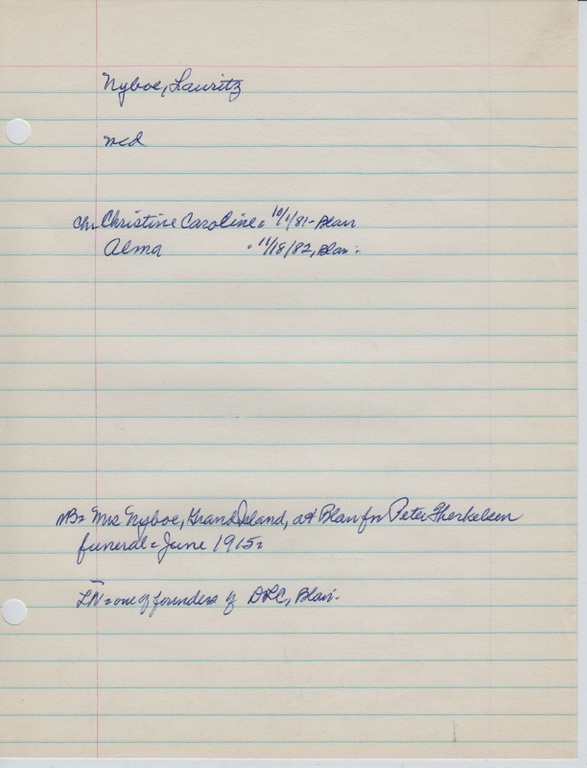 Nyboe, Lauritz
md
Ch= Christine Caroline= 10/1/81- Blair
Alma = 11/18/82, Blair=
NB= Mrs Nyboe, Grand Island, at Blair for Peter Therkelsen
funeral= June 1915=
LN= one of founders of DLC, Blair-